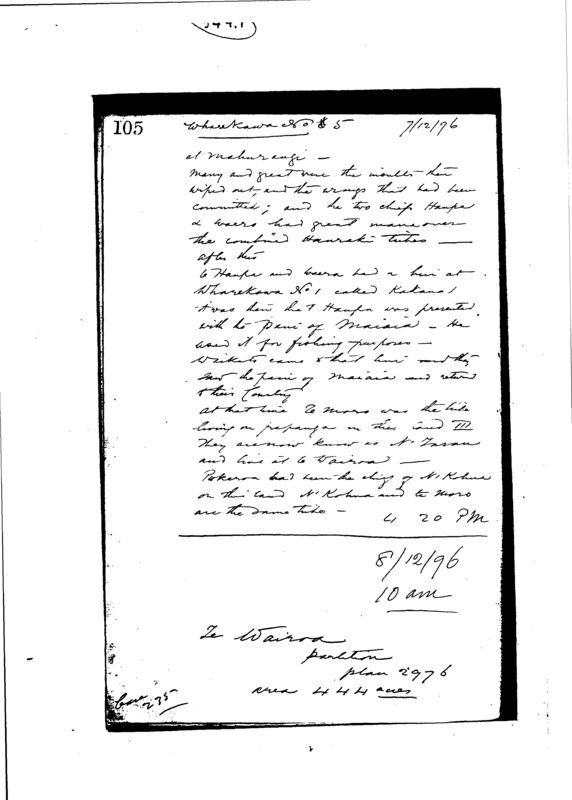 105 Wharekawa No 5 7/12/96
at Mahurangi —
Many and great were the insults then
wiped out, and the wrongs that had been
committed; and the two chiefs Haupa
& Waera had great mana over
the combined Hauraki tribes —
After this
Te Haupa and Waera had a hui at
Wharekawa No 1 called
it was here that Haupa was presented
with the Pani of Maiaia — He
used it for fishing purposes —
Waikato came to that hui and they
saw the pani of Maiaia and returned
to their Country
At that time Te Moro was the tribe
living on papanga on this land III
They are now known as N'
and live at te Wairoa —
Pokeroa had been the chief of N' Kohua
on this land N' Kohua and te Moro
are the same tribe —
4 20 PM
8/12/96
10 am
Te Wairoa
partition
plan 2976
area 444 acres
235